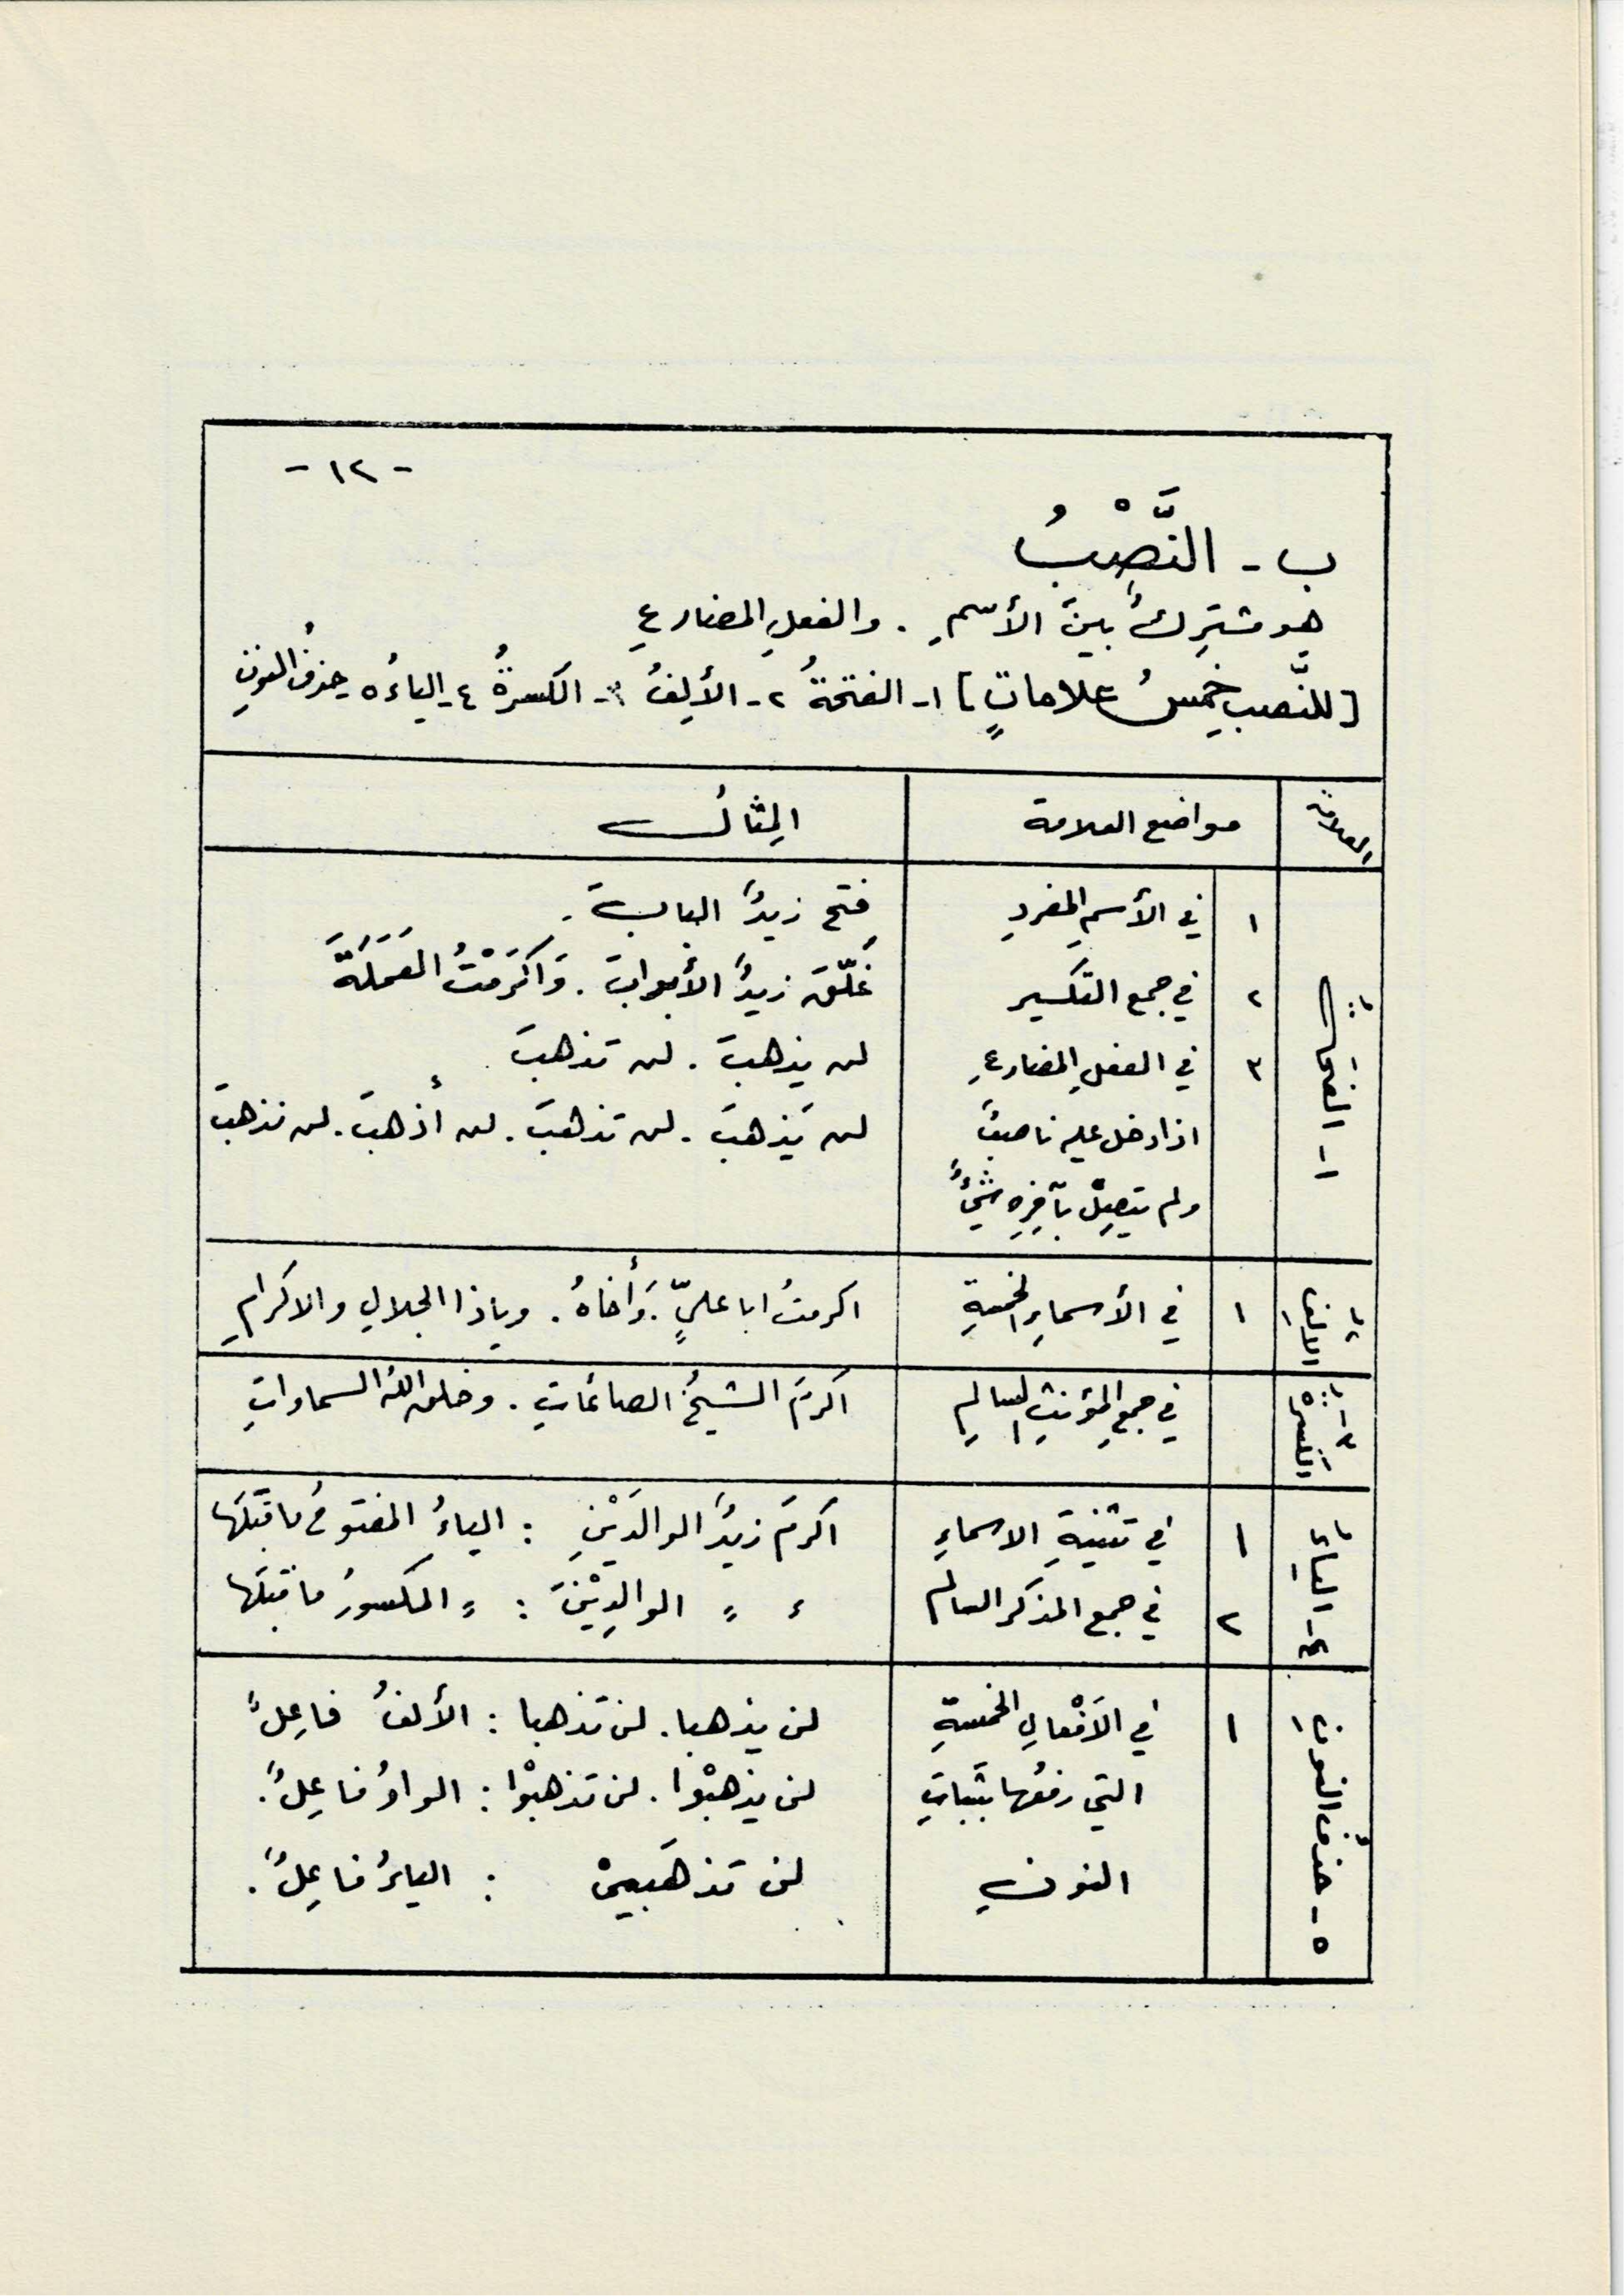 - ١٢ -
ب - النَّصْبُ
هو مشتركٌ بينَ الأسمِ . والفعلِ المضارعِ
[للنَّصبِ خمسُ علاماتٍ] ١- الفتحةُ ٢- الألِفُ ٣- الكسرةُ ٤- الياءُ ٥- حذفُ النونِ
العلامة
مواضع العلامة
المِثالُ
١- الفتحَةُ
١ في الأسمِ المفردِ
فتح زيدٌ البابَ .
٢ في جمع التكسير
غَلَّقَ زيدٌ الأبوابَ . وَاكرَمْتُ العَمَلَةَ
٣ في الفعلِ المضارعِ
لن يذهبَ . لن تذهبَ
اذا دخل عليه ناصبٌ
لن يَذهبَ . لن تذهبَ . لن أذهبَ . لن نذهبَ
ولم يتصِلْ بآخِرِهِ شيءٌ
٢- الالِفُ
١ في الأسماءِ الخمسةِ
اكرمتُ ابا عليٍّ . وَأخاهُ . وياذا الجلالِ والاكرامِ
٣- الكَسرةُ
في جمعِ المؤنثِ السالمِ
اكرمَ الشيخُ الصائماتِ . وخلق اللهُ السماواتِ
٤- الياءُ
١ في تثنيةِ الاسماءِ
اكرمَ زيدٌ الوالدَيْنِ : الياءُ المفتوحُ ماقبْلَها
٢ في جمع المذكر السالم
〃 〃 الوالدِيْنَ : 〃 المكسورُ ما قبْلَها
٥ - حذفُ النونِ
١ في الاَفْعالِ الخمسةِ
لن يذهبا . لن تذهبا : الألفُ فاعِلٌ
التي رفعُها بثَباتِ
لن يذهبُوْا . لن تذهبُوْا : الواوُ فاعِلٌ .
النونِ
لن تذهَبيْ : الياءُ فاعِلٌ .